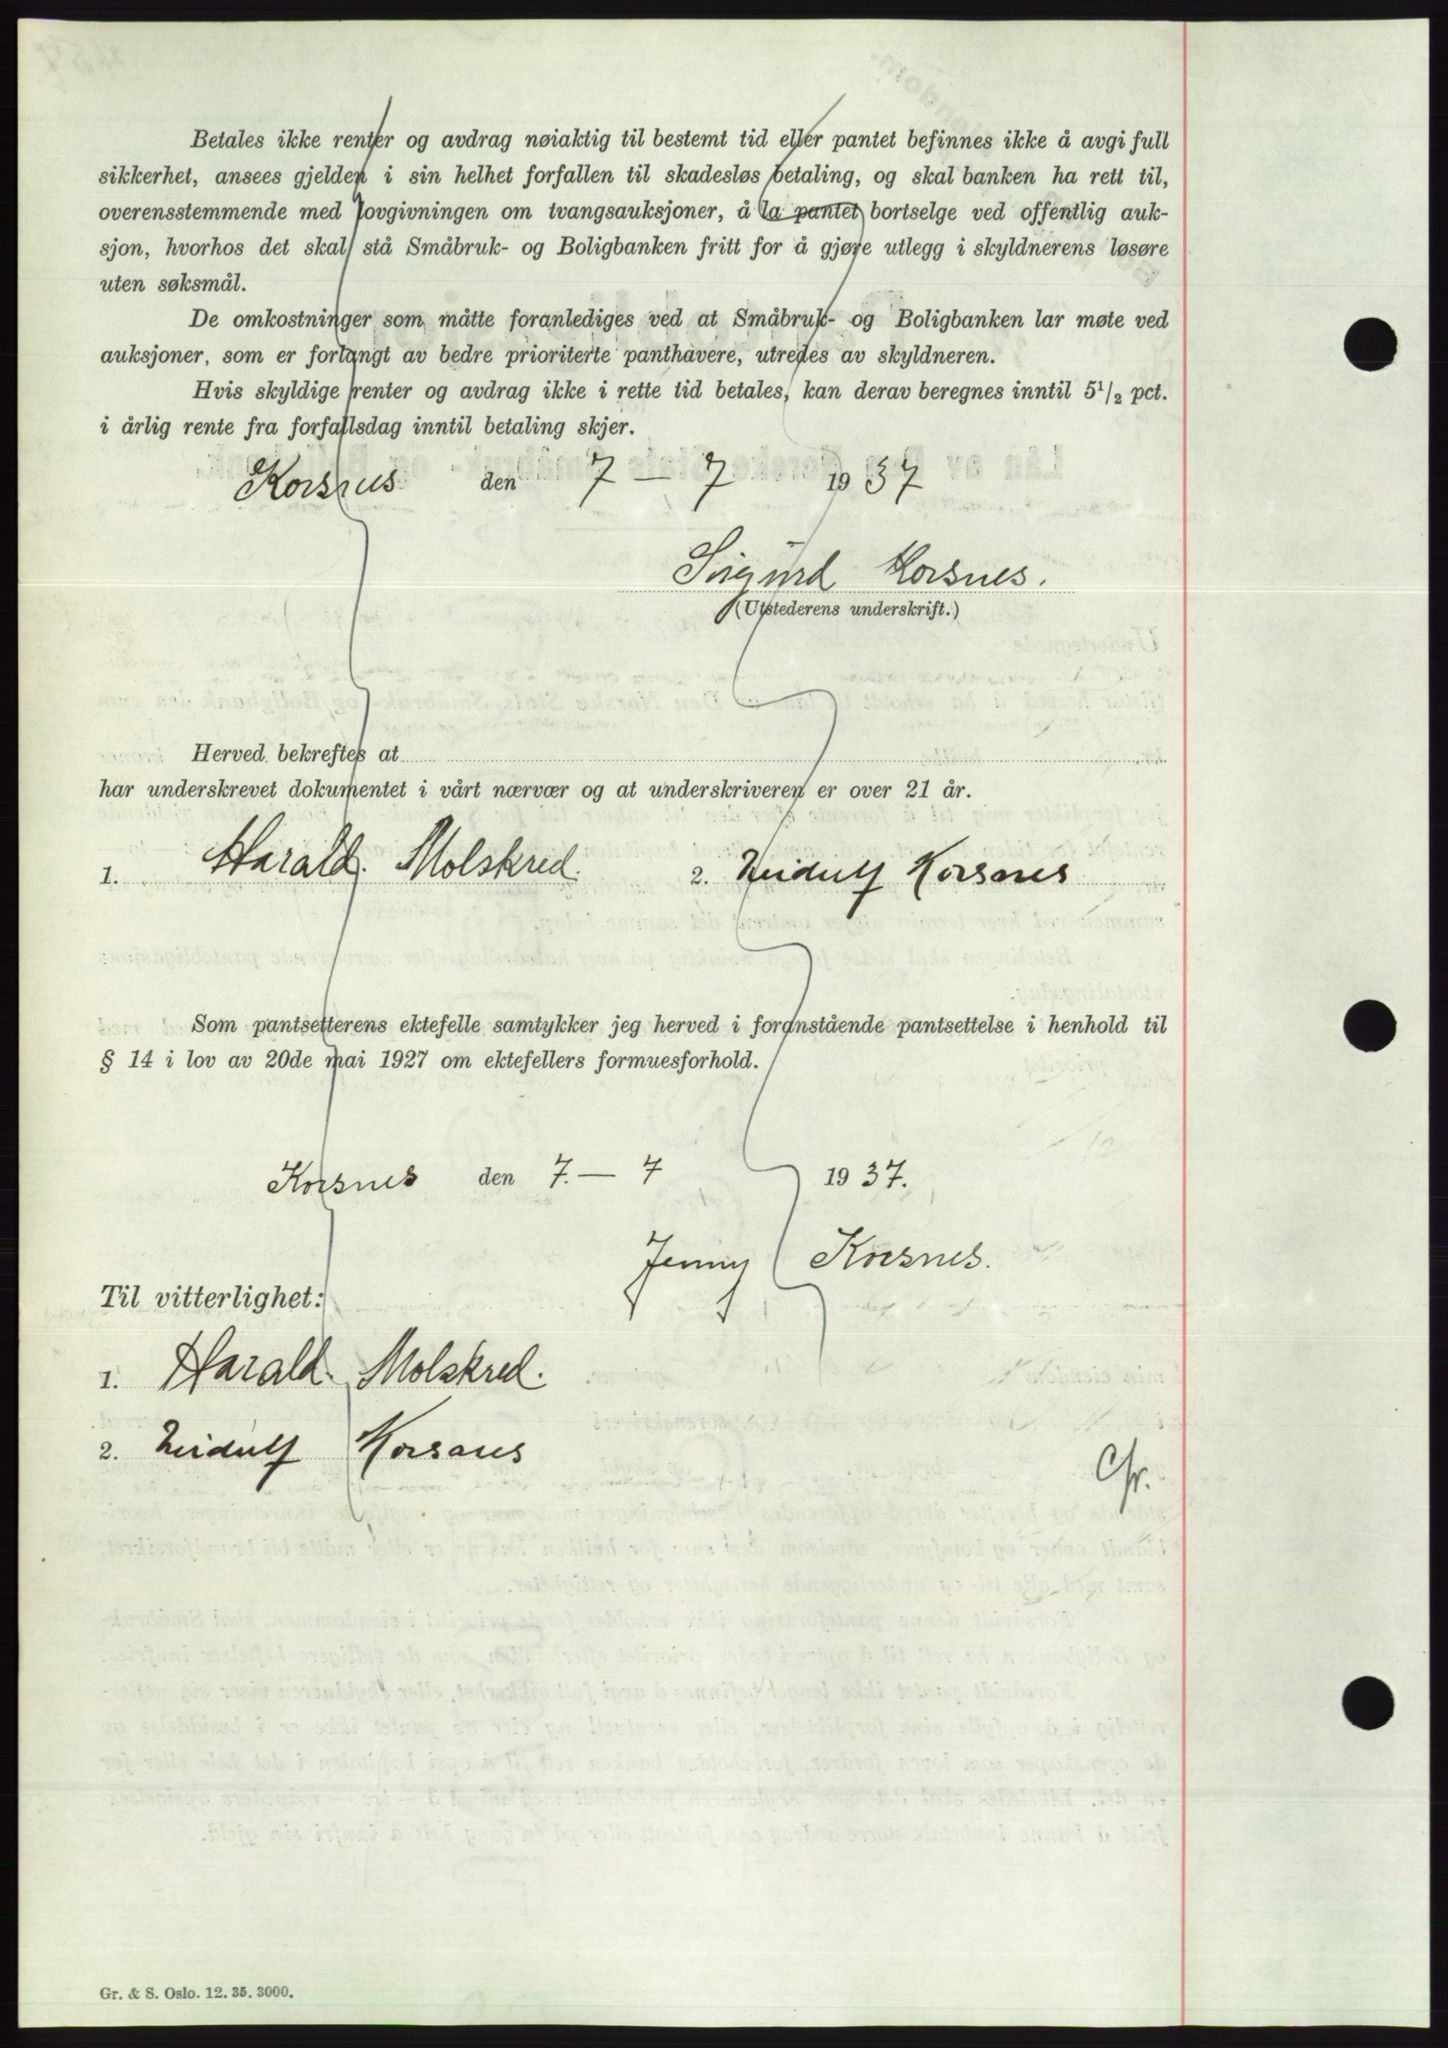 Betales ikke renter og avdrag nøiaktig til bestemt tid eller pantet befinnes ikke å avgi full
sikkerhet, ansees gjelden i sin helhet forfallen til skadesløs betaling, og skal banken ha rett til,
overensstemmende med lovgivningen om tvangsauksjoner, å la pantet bortselge ved offentlig auk-
sjon, hvorhos det skal stå Småbruk- og Boligbanken fritt for å gjøre utlegg i skyldnerens løsøre
uten søksmål.
De omkostninger som måtte foranlediges ved at Småbruk- og Boligbanken lar møte ved
auksjoner, som er forlangt av bedre prioriterte panthavere, utredes av skyldneren.
Hvis skyldige renter og avdrag ikke i rette tid betales, kan derav beregnes inntil 5 1/2 pct.
i årlig rente fra forfallsdag inntil betaling skjer.
Korsnes den 7 — 7 1937
Sigurd Korsnes.
(Utstederens underskrift.)
Herved bekreftes at
har underskrevet dokumentet i vårt nærvær og at underskriveren er over 21 år.
1. Harald Molskred. 2. Korsnes
Som pantsetterens ektefelle samtykker jeg herved i foranstående pantsettelse i henhold til
§ 14 i lov av 20de mai 1927 om ektefellers formuesforhold.
Korsnes den 7. — 7 1937.
Jenny Korsnes.
Til vitterlighet:
1. Harald Molskred.
2. Korsnes
Gr. & S. Oslo. 12. 35. 3000.